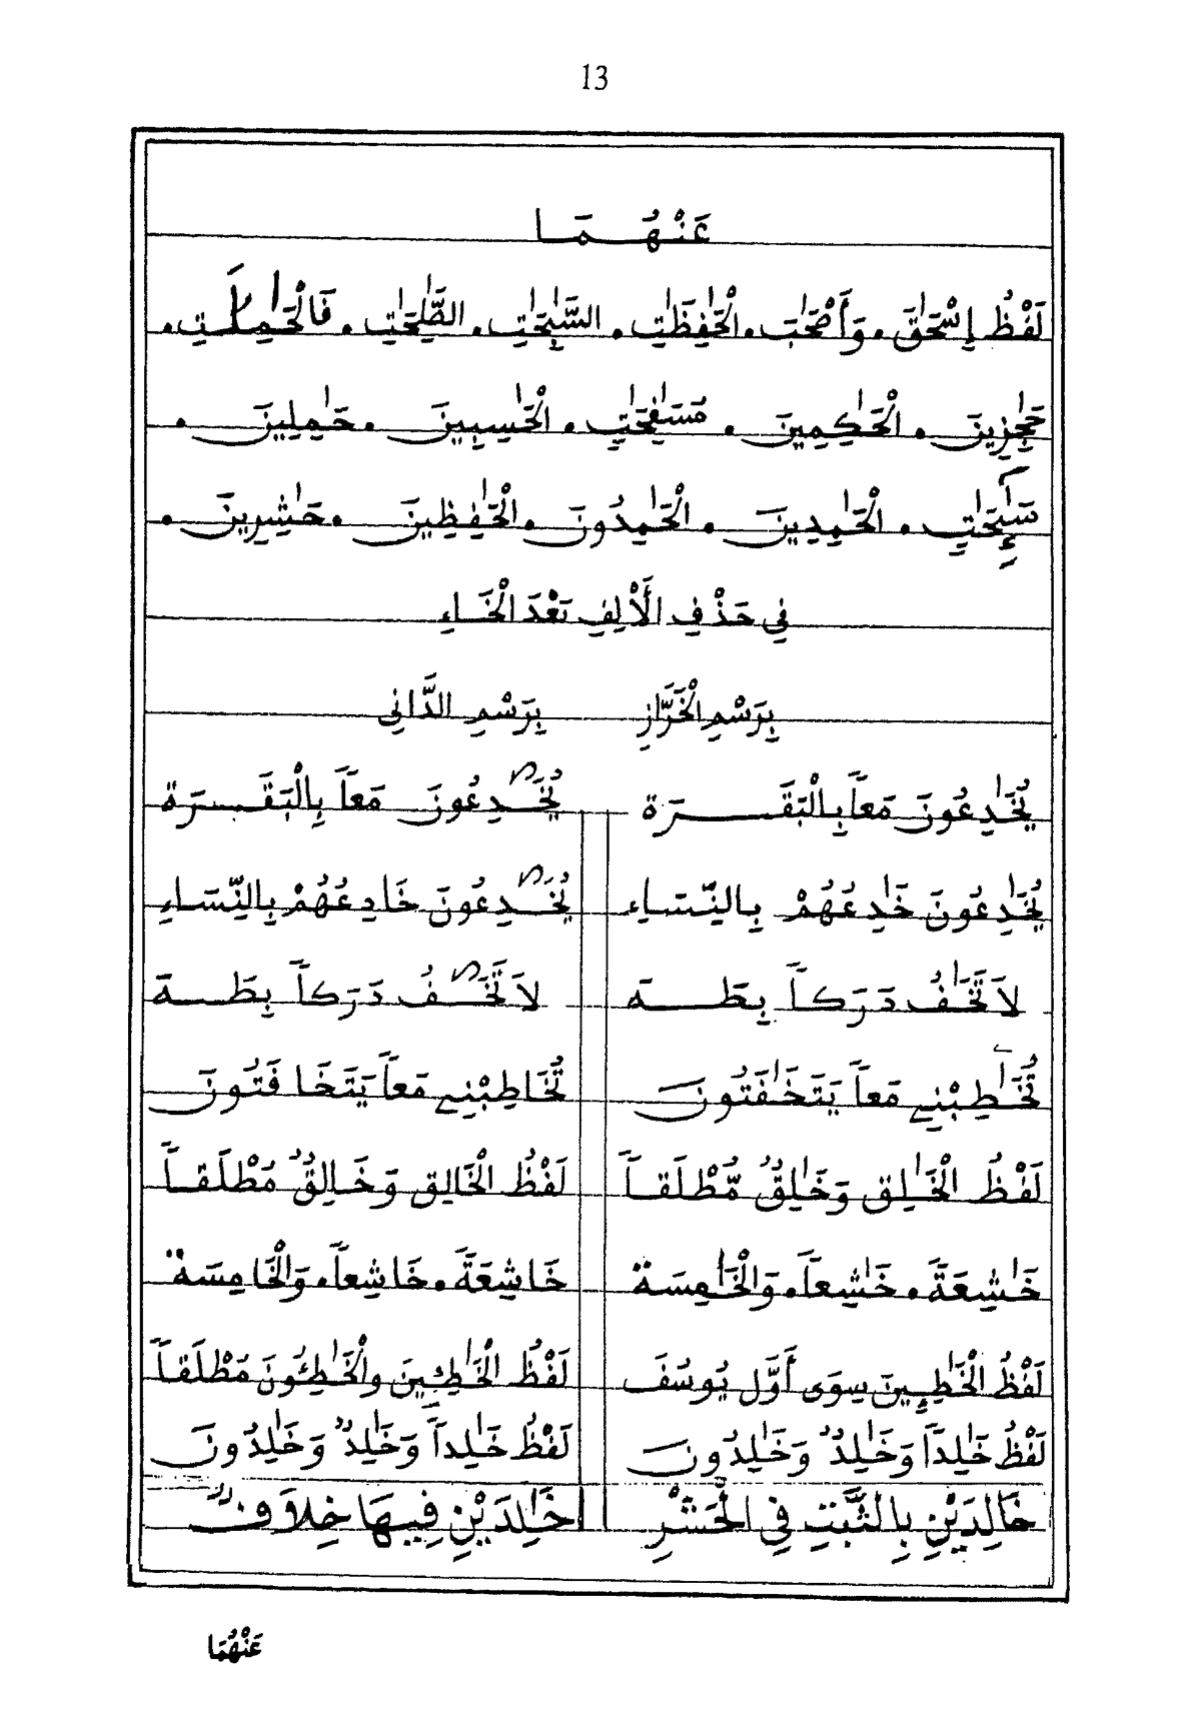 13
عَنْهُمَا
لَفْظُ إِسْحَٰقَ . وَأَصْحَٰبَ . الْحَٰفِظَٰتِ . السَّٰبِحَٰتِ . الصَّٰلِحَٰتِ . فَالْحَٰمِلَٰتِ .
حَٰجِزِينَ . الْحَٰكِمِينَ . مُسَٰفِحَٰتٍ . الْحَٰسِبِينَ . حَٰمِلِينَ .
سَٰٓئِحَٰتٍ . الْحَٰمِدِينَ . الْحَٰمِدُونَ . الْحَٰفِظِينَ . حَٰشِرِينَ .
فِي حَذْفِ الْأَلِفِ بَعْدَ الْخَاءِ
بِرَسْمِ الْخَرَّازِ بِرَسْمِ الدَّانِي
يُخَٰدِعُونَ مَعاً بِالْبَقَرَة يُخَٰدِعُونَ مَعاً بِالْبَقَرَة
يُخَٰدِعُونَ خَٰدِعُهُمْ بِالنِّسَاءِ يُخَٰدِعُونَ خَادِعُهُمْ بِالنِّسَاءِ
لاَ تَخَٰفُ دَرَكاً بِطَهَ لاَ تَخَٰفُ دَرَكاً بِطَهَ
تُخَٰطِبْنِے مَعاً يَتَخَٰفَتُونَ تُخَاطِبْنِے مَعاً يَتَخَافَتُونَ
لَفْظُ الْخَٰلِق وَخَٰلِقٌ مُّطْلَقاً لَفْظُ الْخَالِق وَخَالِقٌ مُطْلَقاً
خَٰشِعَةً . خَٰشِعاً . وَالْخَٰمِسَةُ خَاشِعَةً . خَاشِعاً . وَالْخَامِسَةُ
لَفْظُ الْخَٰطِـِٕينَ سِوَى أَوَّل يُوسُفَ لَفْظُ الْخَٰطِئِينَ والْخَٰطِئُونَ مُطْلَقاً
لَفْظُ خَٰلِداً وَخَٰلِدٌ وَخَٰلِدُونَ لَفْظُ خَٰلِداً وَخَٰلِدٌ وَخَٰلِدُونَ
خَالِدَيْنِ بِالثَّبَتِ فِي الْحَشْرِ خَٰلِدَيْنِ فِيهَا خِلاَفٌ
عَنْهُمَا